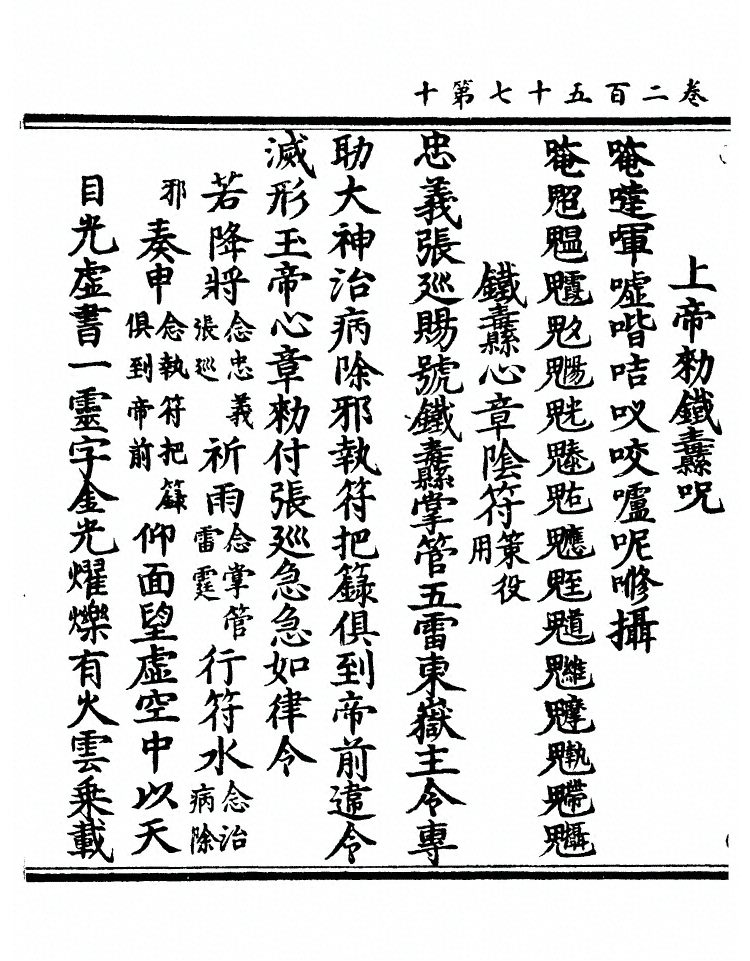 卷二百五十七第十
上帝勑鐵纛呪
唵噠喗噓喈咭咬嚧呢攝
唵
鐵纛心章陰符策役用
忠義張巡賜號鐵纛掌管五雷東嶽主令專
助大神治病除邪執符把籙俱到帝前違令
滅形玉帝心章勑付張巡急急如律令
若降將念忠義張巡祈雨念掌管雷霆行符水念治病除
邪奏申念執符把籙俱到帝前仰面望虛空中以天
目光虛書一靈字金光燿爍有火雲乘載